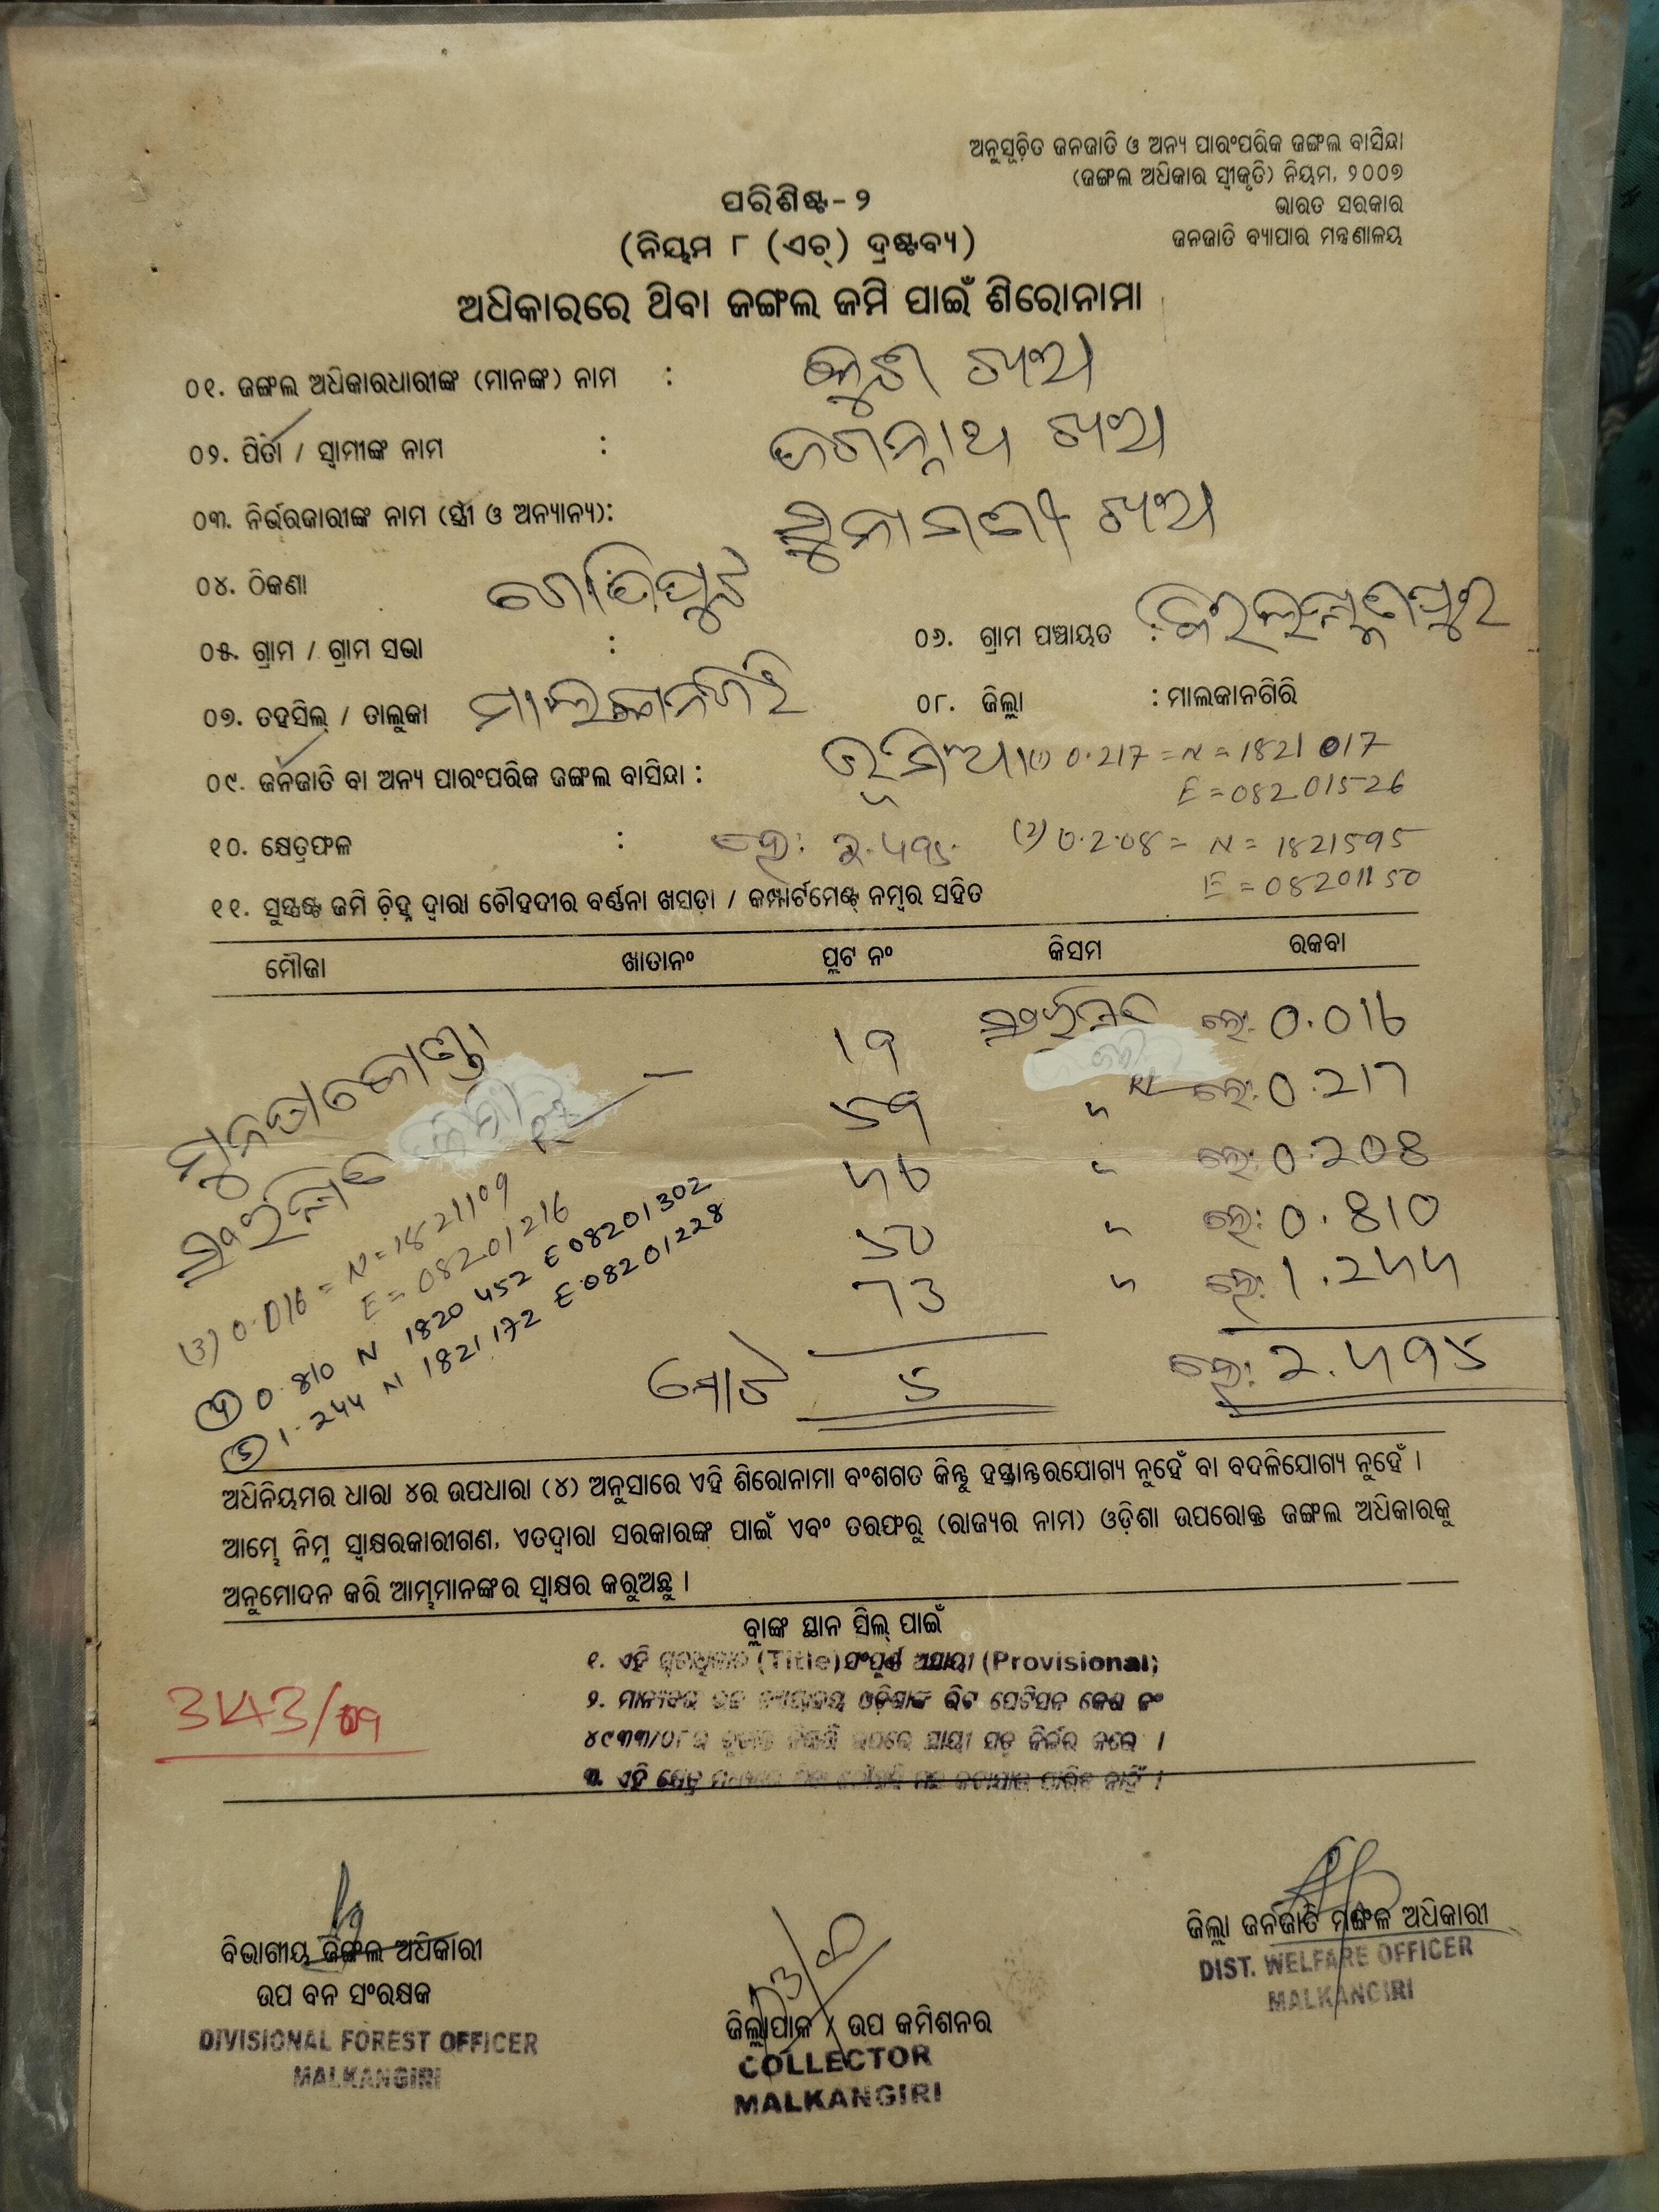 ଅନୁସୂଚିତ ଜନଜାତି ଓ ଅନ୍ୟ ପାରଂପରିକ ଜଙ୍ଗଲ ବାସିନ୍ଦା
(ଜଙ୍ଗଲ ଅଧିକାର ସ୍ୱୀକୃତି) ନିୟମ, ୨୦୦୭
ଭାରତ ସରକାର
ଜନଜାତି ବ୍ୟାପାର ମନ୍ତ୍ରଣାଳୟ
ପରିଶିଷ୍ଟ-୨
(ନିୟମ ୮ (ଏଚ୍) ଦ୍ରଷ୍ଟବ୍ୟ)
ଅଧିକାରରେ ଥିବା ଜଙ୍ଗଲ ଜମି ପାଇଁ ଶିରୋନାମା
୦୧. ଜଙ୍ଗଲ ଅଧିକାରଧାରୀଙ୍କ (ମାନଙ୍କ) ନାମ :
୦୨. ପିତା / ସ୍ୱାମୀଙ୍କ ନାମ : ଜଗନ୍ନାଥ
୦୩. ନିର୍ଭରକାରୀଙ୍କ ନାମ (ସ୍ତ୍ରୀ ଓ ଅନ୍ୟାନ୍ୟ):
୦୪. ଠିକଣା
୦୫. ଗ୍ରାମ / ଗ୍ରାମ ସଭା : ୦୬. ଗ୍ରାମ ପଞ୍ଚାୟତ :
୦୭. ତହସିଲ୍ / ତାଲୁକା ମାଲକାନଗିରି ୦୮. ଜିଲ୍ଲା : ମାଲକାନଗିରି
୦୯. ଜନଜାତି ବା ଅନ୍ୟ ପାରଂପରିକ ଜଙ୍ଗଲ ବାସିନ୍ଦା : ଭୂମିଆ (1) 0.217 = N = 1821017
E = 08201526
୧୦. କ୍ଷେତ୍ରଫଳ : ହେ: ୨.୪୯୫ (2) 0.208 = N = 1821595
E = 08201150
୧୧. ସୁସ୍ପଷ୍ଟ ଜମି ଚିହ୍ନ ଦ୍ୱାରା ଚୌହଦୀର ବର୍ଣ୍ଣନା ଖସଡ଼ା / କମ୍ପାର୍ଟମେଣ୍ଟ୍ ନମ୍ବର ସହିତ
ମୌଜା ଖାତାନଂ ପ୍ଲଟ ନଂ କିସମ ରକବା
19 ହେ: 0.016
59 " ହେ: 0.217
46 " ହେ: 0.208
50 " ହେ: 0.810
73 " ହେ: 1.244
(3) 0.016 = N = 1821109
E = 08201216
(4) 0.810 N 1820452 E 08201302
(5) 1.244 N 1821172 E 08201228
ମୋଟ 5 ହେ: 2.495
ଅଧିନିୟମର ଧାରା ୪ର ଉପଧାରା (୪) ଅନୁସାରେ ଏହି ଶିରୋନାମା ବଂଶଗତ କିନ୍ତୁ ହସ୍ତାନ୍ତରଯୋଗ୍ୟ ନୁହେଁ ବା ବଦଳିଯୋଗ୍ୟ ନୁହେଁ ।
ଆମ୍ଭେ ନିମ୍ନ ସ୍ୱାକ୍ଷରକାରୀଗଣ, ଏତଦ୍ୱାରା ସରକାରଙ୍କ ପାଇଁ ଏବଂ ତରଫରୁ (ରାଜ୍ୟର ନାମ) ଓଡ଼ିଶା ଉପରୋକ୍ତ ଜଙ୍ଗଲ ଅଧିକାରକୁ
ଅନୁମୋଦନ କରି ଆମ୍ଭମାନଙ୍କର ସ୍ୱାକ୍ଷର କରୁଅଛୁ ।
ବ୍ଲାଙ୍କ ସ୍ଥାନ ସିଲ୍ ପାଇଁ
୧. ଏହି (Title) ସଂପୂର୍ଣ୍ଣ ଅସ୍ଥାୟୀ (Provisional)
୨. ଓଡ଼ିଶାଙ୍କ ରିଟ ପେଟିସନ କେଶ ନଂ
୪୯୩୩/୦୮ର ସ୍ଥାୟୀ ନିର୍ଭର କରେ ।
୩. ଏହି ନାହିଁ ।
3143/09
ବିଭାଗୀୟ ଜଙ୍ଗଲ ଅଧିକାରୀ
ଉପ ବନ ସଂରକ୍ଷକ
DIVISIONAL FOREST OFFICER
MALKANGIRI
ଜିଲ୍ଲାପାଳ / ଉପ କମିଶନର
COLLECTOR
MALKANGIRI
ଜିଲ୍ଲା ଜନଜାତି ମଙ୍ଗଳ ଅଧିକାରୀ
DIST. WELFARE OFFICER
MALKANGIRI